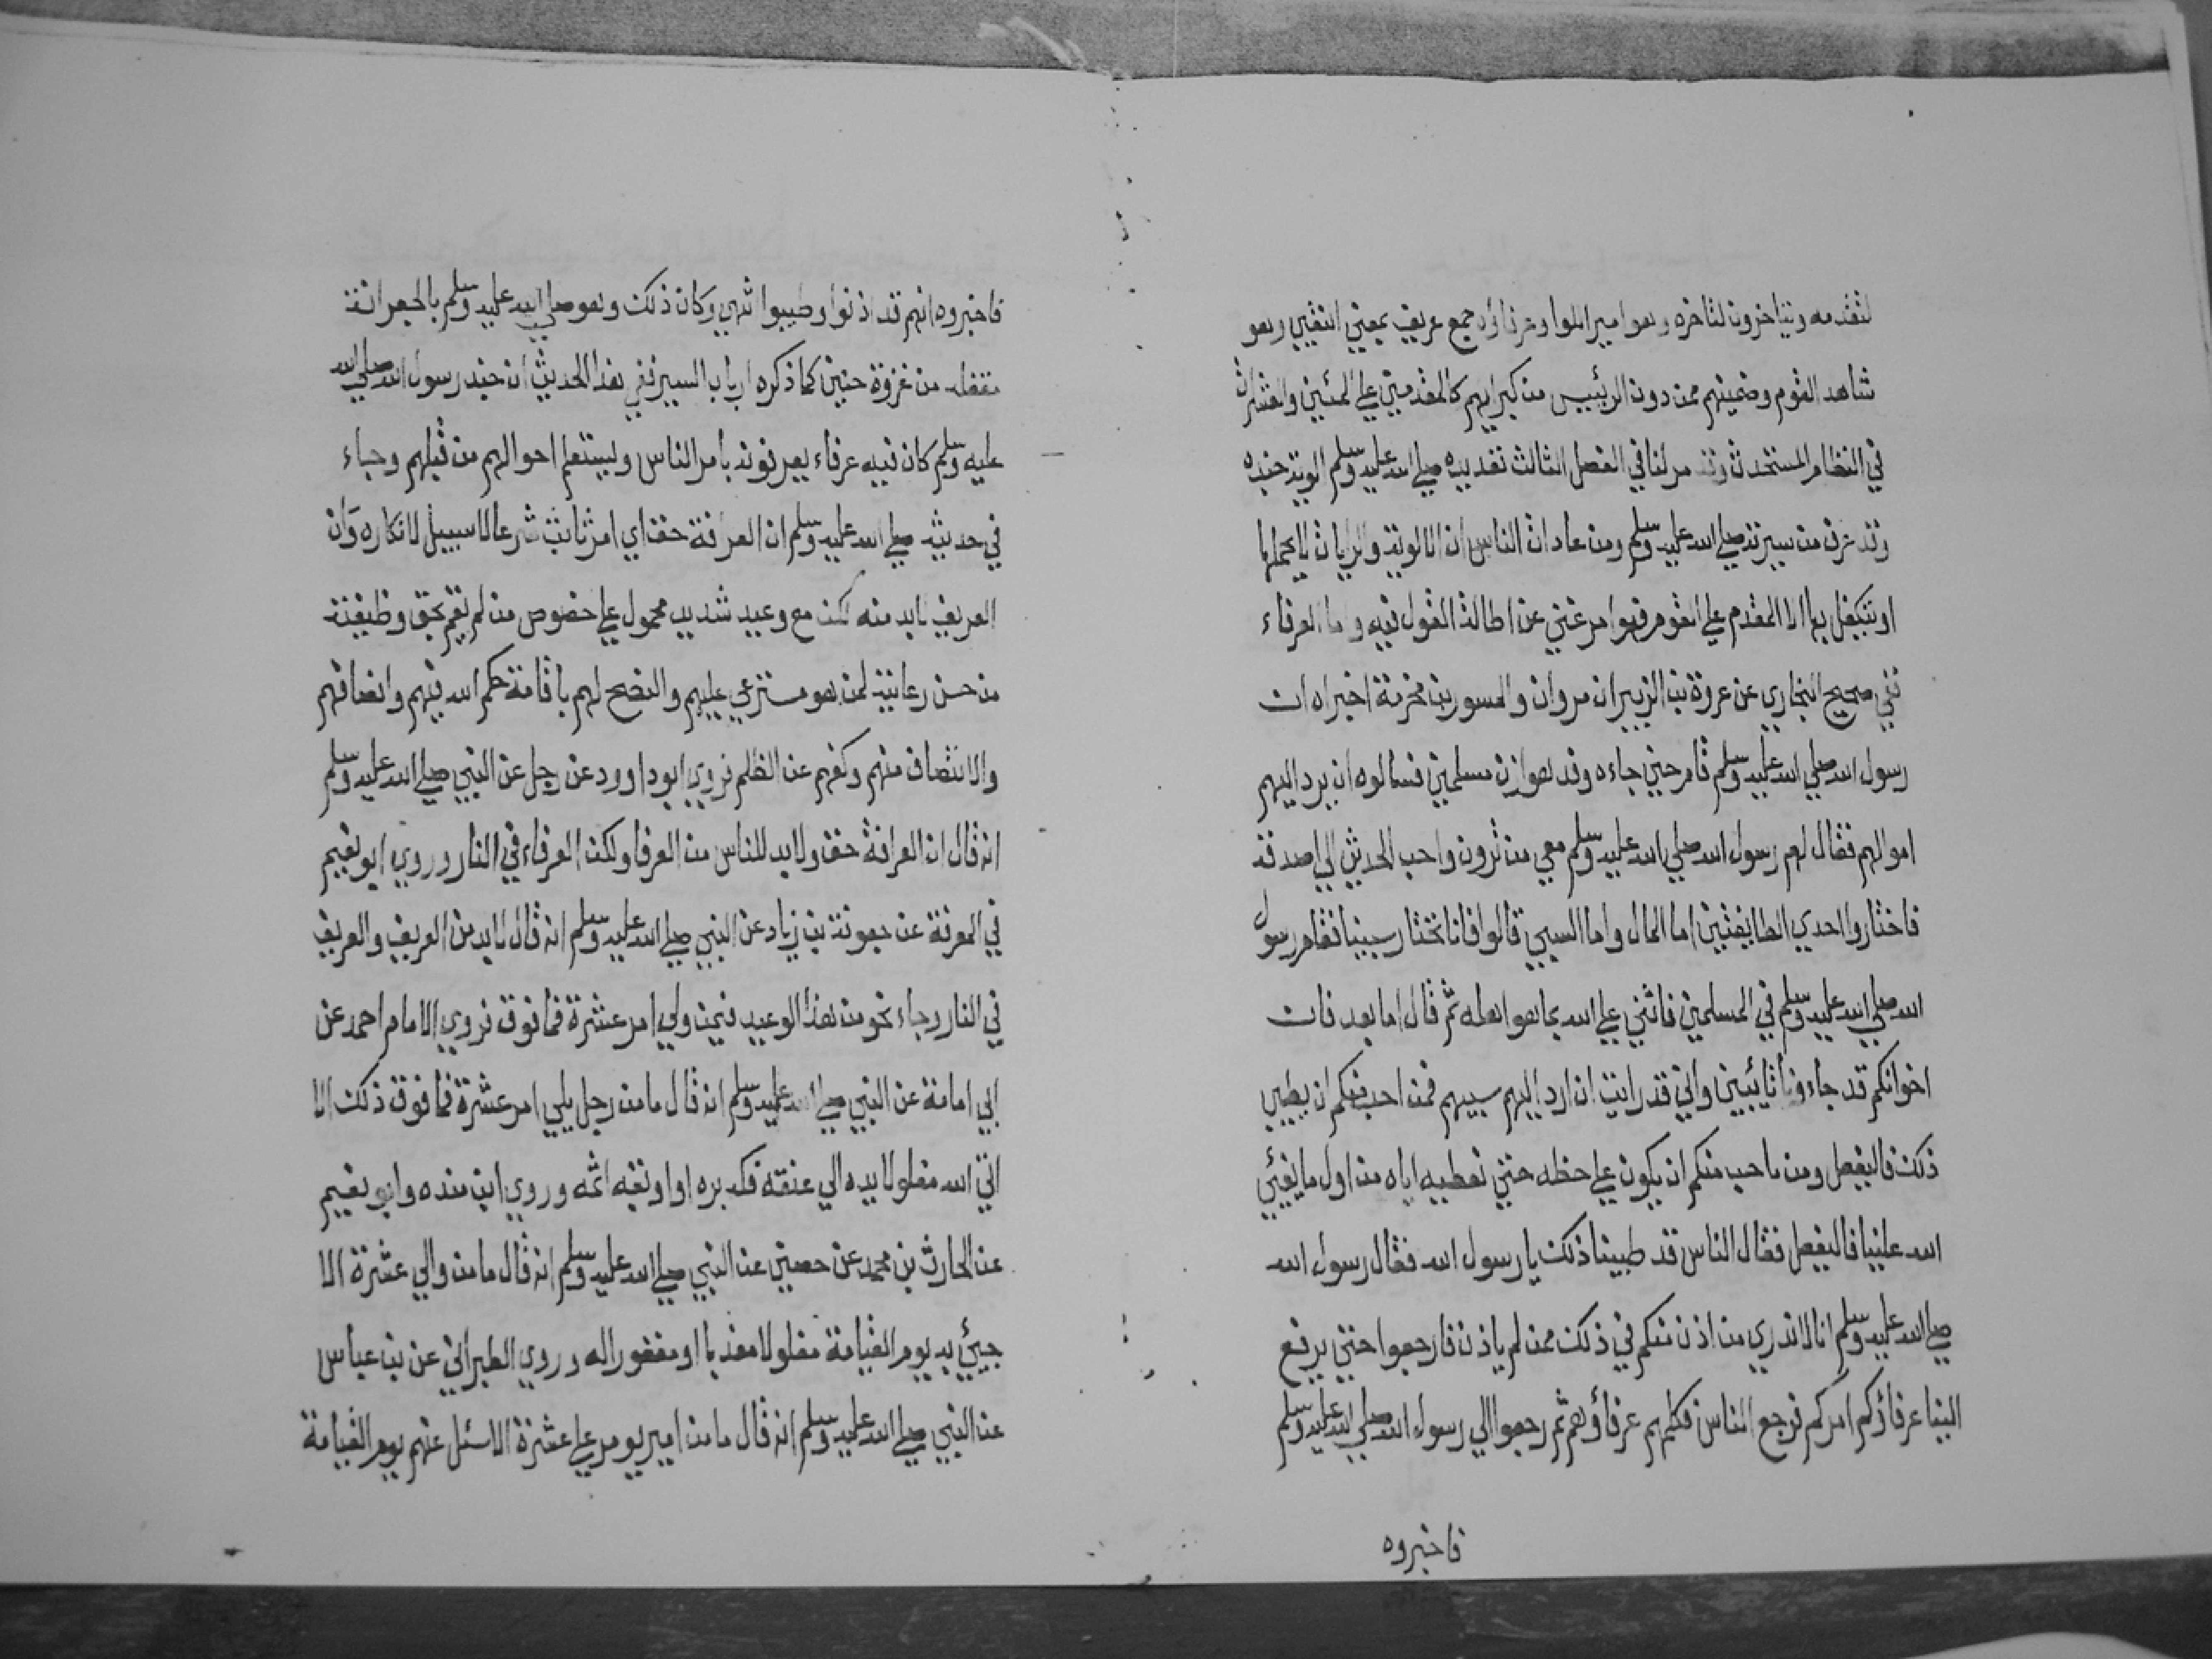 لتقدمه ويتاخرون لتاخره وهو امير اللوا وعرفاؤه جمع عريف بمعني النقيب وهو
شاهد القوم وضمينهم ممن دون الرئيس من كبرايهم كالمقدمين علي المئين والعشرات
في النظام المستحدث وقد مر لنا في الفصل الثالث تعديده صلي الله عليه وسلم الوية جنده
وقد عرف من سيرته صلي الله عليه وسلم ومن عادات الناس ان الالوية والرايات لا يحملها
او يتكفل بها الا المقدم علي القوم فهو امر غني عن اطالة القول فيه واما العرفاء
ففي صحيح البخاري عن عروة بن الزبير ان مروان والمسور بن مخرمة اخبراه ان
رسول الله صلي الله عليه وسلم قام حين جاءه وفد هوازن مسلمين فسالوه ان يرد اليهم
اموالهم فقال لهم رسول الله صلي الله عليه وسلم معي من ترون واحب الحديث الي اصدقه
فاختاروا احدي الطايفتين اما المال واما السبي قالوا فانا نختار سبينا فقام رسول
الله صلي الله عليه وسلم في المسلمين فاثني علي الله بما هو اهله ثم قال اما بعد فان
اخوانكم قد جاءونا تايبين واني قد رايت ان ارد اليهم سبيهم فمن احب منكم ان يطيب
ذلك فاليفعل ومن احب منكم ان يكون علي حظه حتي نعطيه اياه من اول ما يفيئ
الله علينا فاليفعل فقال الناس قد طيبنا ذلك يا رسول الله فقال رسول الله
صلي الله عليه وسلم انا لا ندري من اذن منكم في ذلك ممن لم ياذن فارجعوا حتي يرفع
الينا عرفاؤكم امركم فرجع الناس فكلمهم عرفاؤهم ثم رجعوا الي رسول الله صلي الله عليه وسلم
فاخبروه
فاخبروه انهم قد اذنوا وطيبوا وكان ذلك وهو صلي الله عليه وسلم بالجعرانة
مقفله من غزوة حنين كما ذكره ارباب السير ففي هذا الحديث ان جند رسول الله صلي الله
عليه وسلم كان فيه عرفاء يعرفونه بأمر الناس وليستعلم احوالهم من قبلهم وجاء
في حديثه صلي الله عليه وسلم ان العرافة حق اي امر ثابت شرعا لا سبيل لانكاره وان
العريف لابد منه لكن مع وعيد شديد محمول علي خصوص من لم يقم بحق وظيفته
من حسن رعايته لمن هو مسترعي عليهم والنصح لهم باقامة حكم الله فيهم وانصافهم
والانتصاف منهم وكفهم عن الظلم فروي ابو داوود عن رجل عن النبي صلي الله عليه وسلم
انه قال ان العرافة حق ولا بد للناس من العرفا ولكن العرفاء في النار وروي ابو نعيم
في المعرفة عن جعونة بن زياد عن النبي صلي الله عليه وسلم انه قال لا بد من العريف والعريف
في النار وجاء نحو من هذا الوعيد فيمن ولي امر عشرة فما فوق فروي الامام احمد عن
ابي امامة عن النبي صلي الله عليه وسلم انه قال ما من رجل يلي امر عشرة فما فوق ذلك الا
اتي الله مغلولا يده الي عنقه فكه بره او اوثقه اثمه وروي ابن منده وابو نعيم
عن الحارث بن محمد عن حصين عن النبي صلي الله عليه وسلم انه قال ما من والي عشرة الا
جيئ به يوم القيامة مغلولا معذبا او مغفورا له وروي الطبراني عن بن عباس
عن النبي صلي الله عليه وسلم انه قال ما من امير يومر علي عشرة الا سئل عنهم يوم القيامة